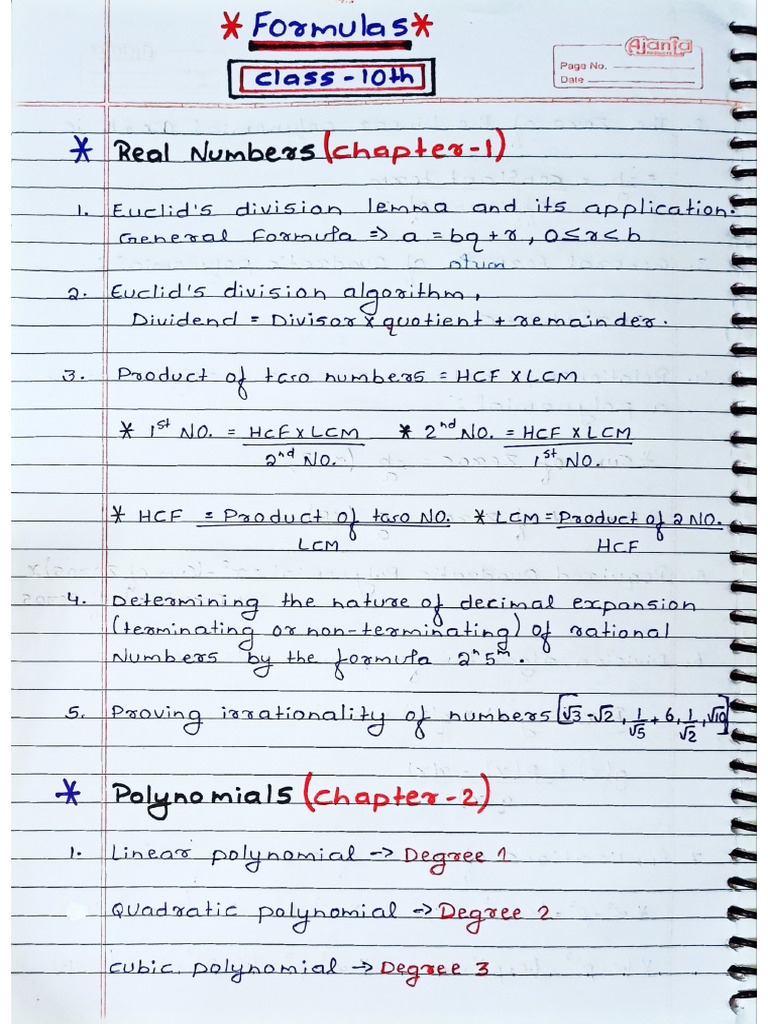 * Formulas *
Class-10th
Ajanta
Page No.
Date
* Real Numbers (Chapter-1)
1. Euclid's division lemma and its application.
General Formula => a = bq + r, 0 ≤ r < b
2. Euclid's division algorithm,
Dividend = Divisor x quotient + remainder.
3. Product of two numbers = HCF X LCM
* 1st NO. = HCF X LCM / 2nd NO. * 2nd NO. = HCF X LCM / 1st NO.
* HCF = Product of two NO. / LCM * LCM = Product of 2 NO. / HCF
4. Determining the nature of decimal expansion
(terminating or non-terminating) of rational
Numbers by the formula 2ⁿ5ᵐ.
5. Proving irrationality of numbers [√3 - √2, 1/√5 + 6, 1/√2, √10]
* Polynomials (Chapter-2)
1. Linear polynomial -> Degree 1
Quadratic polynomial -> Degree 2
cubic polynomial -> Degree 3